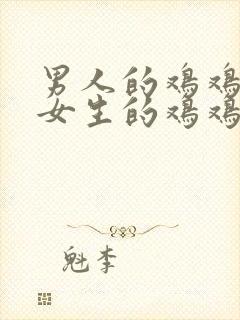 男人的鸡鸡
女生的鸡鸡
魁李